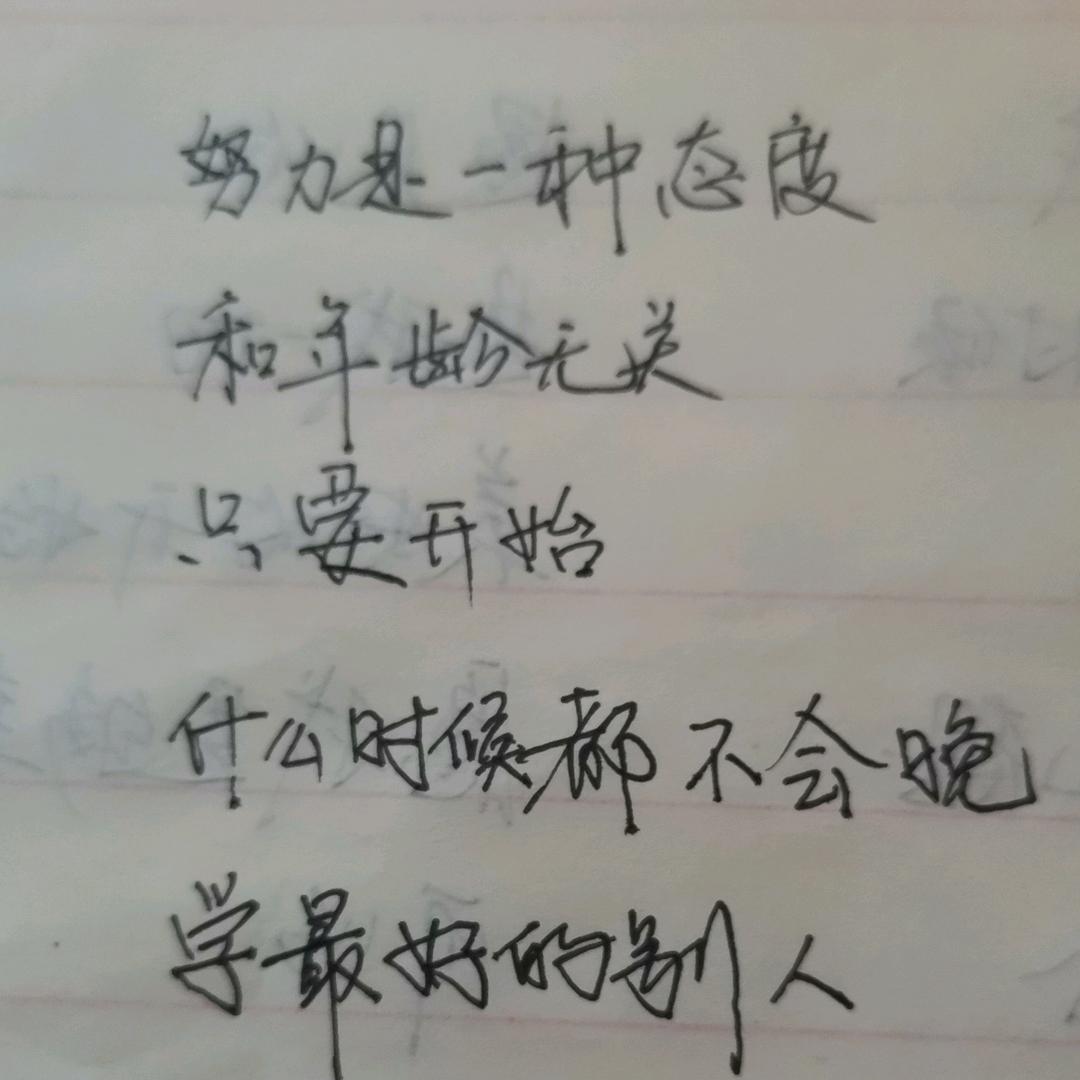 努力是一种态度
和年龄无关
只要开始
什么时候都不会晚
学最好的别人